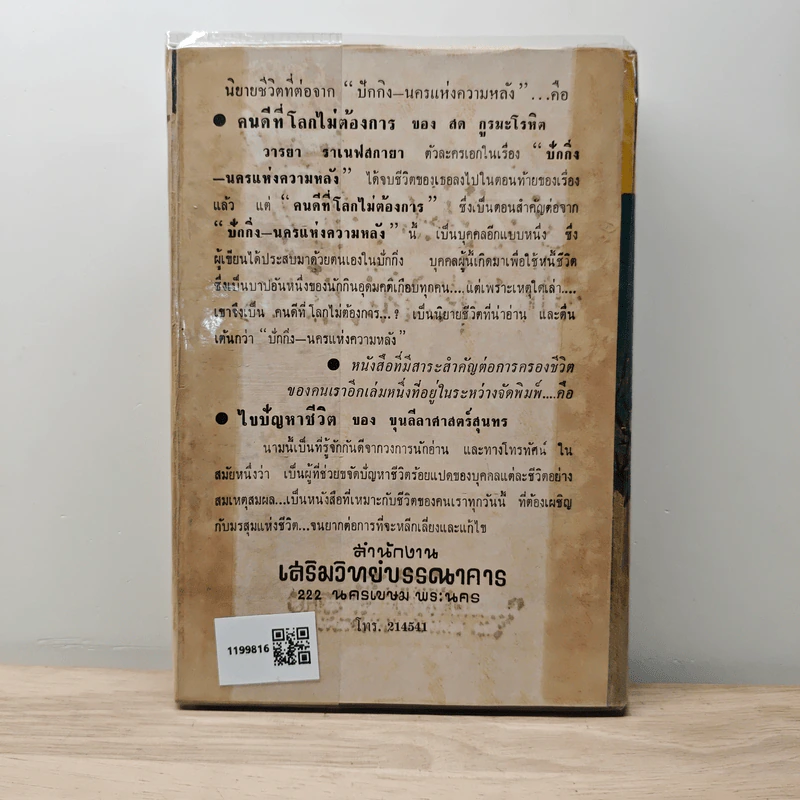 นิยายชีวิตที่ต่อจาก “ปักกิ่ง—นครแห่งความหลัง”...คือ
● คนดีที่โลกไม่ต้องการ ของ สด กูรมะโรหิต
วารยา ราเนฟสกายา ตัวละครเอกในเรื่อง “ปักกิ่ง
—นครแห่งความหลัง” ได้จบชีวิตของเธอลงไปในตอนท้ายของเรื่อง
แล้ว แต่ “คนดีที่โลกไม่ต้องการ” ซึ่งเป็นตอนสำคัญต่อจาก
“ปักกิ่ง—นครแห่งความหลัง” นี้ เป็นบุคคลอีกแบบหนึ่ง ซึ่ง
ผู้เขียนได้ประสบมาด้วยตนเองในปักกิ่ง บุคคลผู้นี้เกิดมาเพื่อใช้หนี้ชีวิต
ซึ่งเป็นบาปอันหนึ่งของนักกินอุดมคติเกือบทุกคน....แต่เพราะเหตุใดเล่า....
เขาจึงเป็น คนดีที่โลกไม่ต้องการ...? เป็นนิยายชีวิตที่น่าอ่าน และตื่น
เต้นกว่า “ปักกิ่ง—นครแห่งความหลัง”
● หนังสือที่มีสาระสำคัญต่อการครองชีวิต
ของคนเราอีกเล่มหนึ่งที่อยู่ในระหว่างจัดพิมพ์....คือ
● ไขปัญหาชีวิต ของ ขุนลีลาศาสตร์สุนทร
นามนี้เป็นที่รู้จักกันดีจากวงการนักอ่าน และทางโทรทัศน์ ใน
สมัยหนึ่งว่า เป็นผู้ที่ช่วยขจัดปัญหาชีวิตร้อยแปดของบุคคลแต่ละชีวิตอย่าง
สมเหตุสมผล...เป็นหนังสือที่เหมาะกับชีวิตของคนเราทุกวันนี้ ที่ต้องเผชิญ
กับมรสุมแห่งชีวิต...จนยากต่อการที่จะหลีกเลี่ยงและแก้ไข
สำนักงาน
เสริมวิทย์บรรณาคาร
222 นครเขษม พระนคร
โทร. 214541
1199816